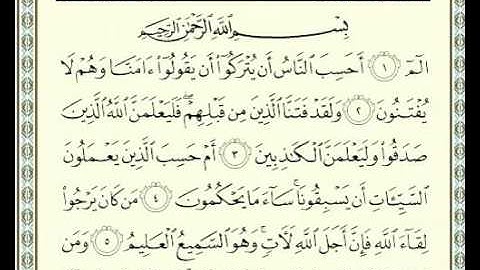 بِسْمِ اللَّهِ الرَّحْمَٰنِ الرَّحِيمِ
الٓمٓ ١ أَحَسِبَ النَّاسُ أَن يُتْرَكُوٓا۟ أَن يَقُولُوٓا۟ ءَامَنَّا وَهُمْ لَا
يُفْتَنُونَ ٢ وَلَقَدْ فَتَنَّا الَّذِينَ مِن قَبْلِهِمْ ۖ فَلَيَعْلَمَنَّ اللَّهُ الَّذِينَ
صَدَقُوا۟ وَلَيَعْلَمَنَّ الْكَٰذِبِينَ ٣ أَمْ حَسِبَ الَّذِينَ يَعْمَلُونَ
السَّيِّـَٔاتِ أَن يَسْبِقُونَا ۚ سَآءَ مَا يَحْكُمُونَ ٤ مَن كَانَ يَرْجُوا۟
لِقَآءَ اللَّهِ فَإِنَّ أَجَلَ اللَّهِ لَءَاتٍ ۚ وَهُوَ السَّمِيعُ الْعَلِيمُ ٥ وَمَن